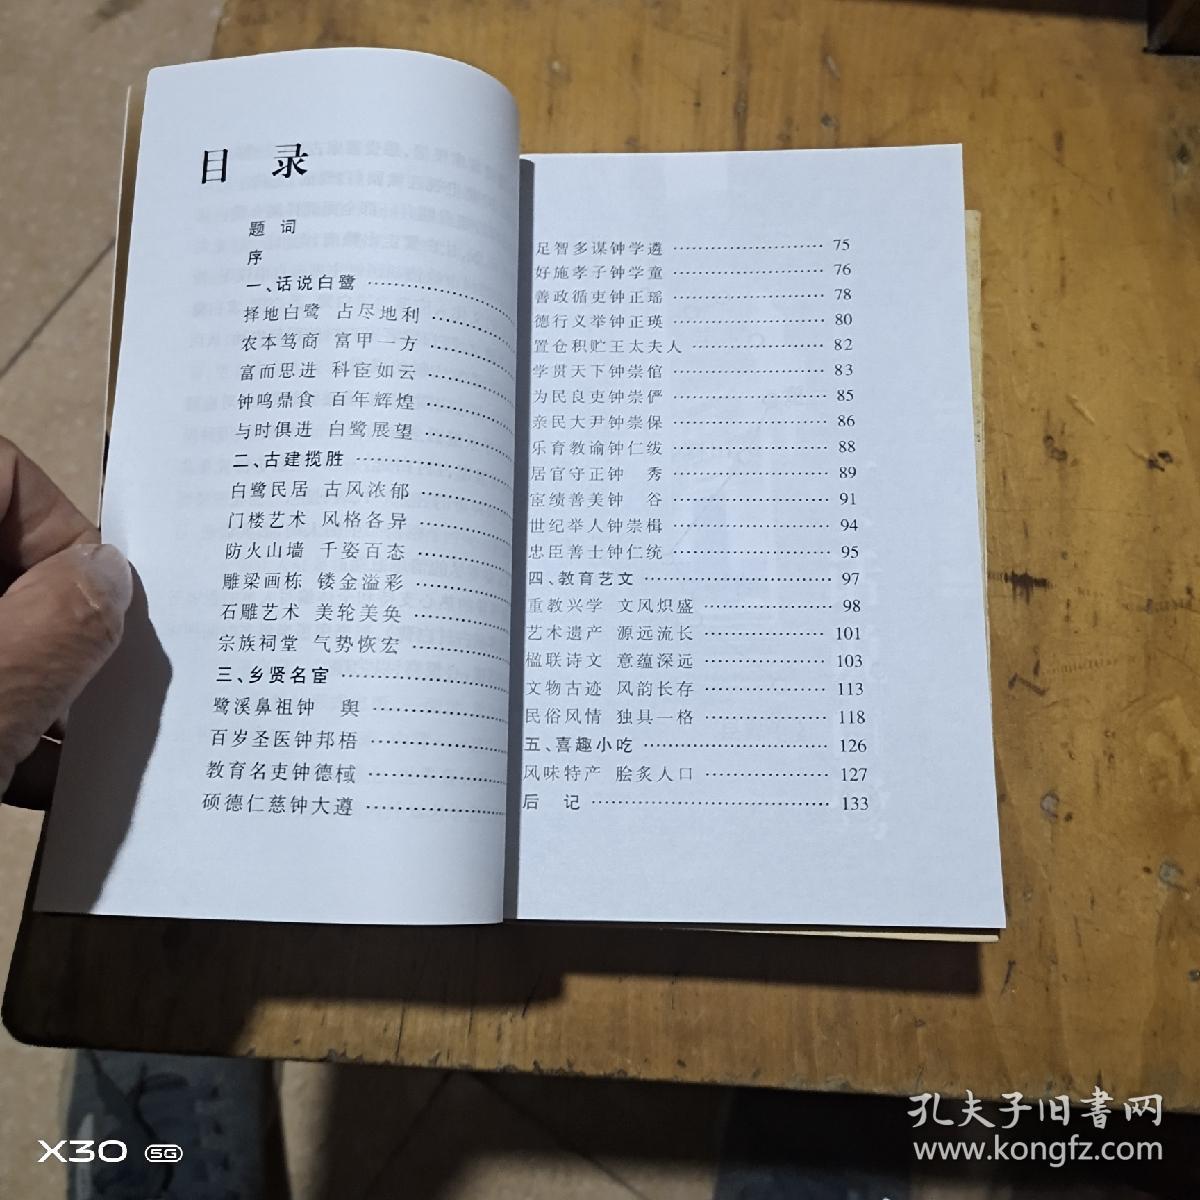 目 录
题 词
序
一、话说白鹭 ……………
择地白鹭 占尽地利 ………
农本笃商 富甲一方 ………
富而思进 科宦如云 ………
钟鸣鼎食 百年辉煌 ………
与时俱进 白鹭展望 ………
二、古建揽胜 ……………
白鹭民居 古风浓郁 ………
门楼艺术 风格各异 ………
防火山墙 千姿百态 ………
雕梁画栋 镂金溢彩 ………
石雕艺术 美轮美奂 ………
宗族祠堂 气势恢宏 ………
三、乡贤名宦 ……………
鹭溪鼻祖钟 舆 …………
百岁圣医钟邦梧 …………
教育名吏钟德棫 …………
硕德仁慈钟大遵 …………
足智多谋钟学遵 …………………… 75
好施孝子钟学童 …………………… 76
善政循吏钟正瑶 …………………… 78
德行义举钟正瑛 …………………… 80
置仓积贮王太夫人 ………………… 82
学贯天下钟崇倌 …………………… 83
为民良吏钟崇俨 …………………… 85
亲民大尹钟崇保 …………………… 86
乐育教谕钟仁绂 …………………… 88
居官守正钟 秀 …………………… 89
宦绩善美钟 谷 …………………… 91
世纪举人钟崇楫 …………………… 94
忠臣善士钟仁统 …………………… 95
四、教育艺文 ……………………… 97
重教兴学 文风炽盛 ……………… 98
艺术遗产 源远流长 ……………… 101
楹联诗文 意蕴深远 ……………… 103
文物古迹 风韵长存 ……………… 113
民俗风情 独具一格 ……………… 118
五、喜趣小吃 ……………………… 126
风味特产 脍炙人口 ……………… 127
后 记 ……………………………… 133
X30 5G
孔夫子旧书网
www.kongfz.com